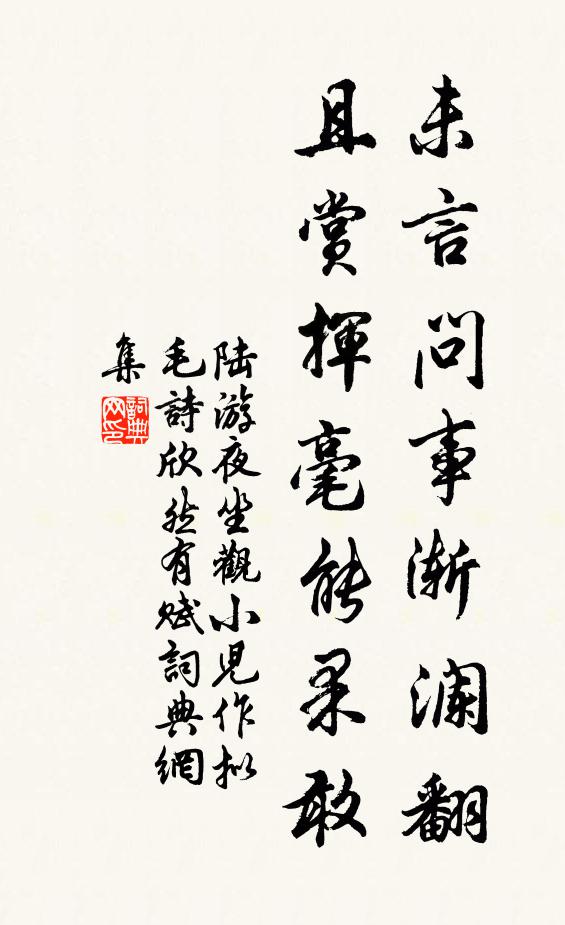 未言問事漸瀾翻
且賞揮毫能果敢
陸游夜坐觀小児作拟
毛詩欣然有賦詞典網
集
詞典
网印